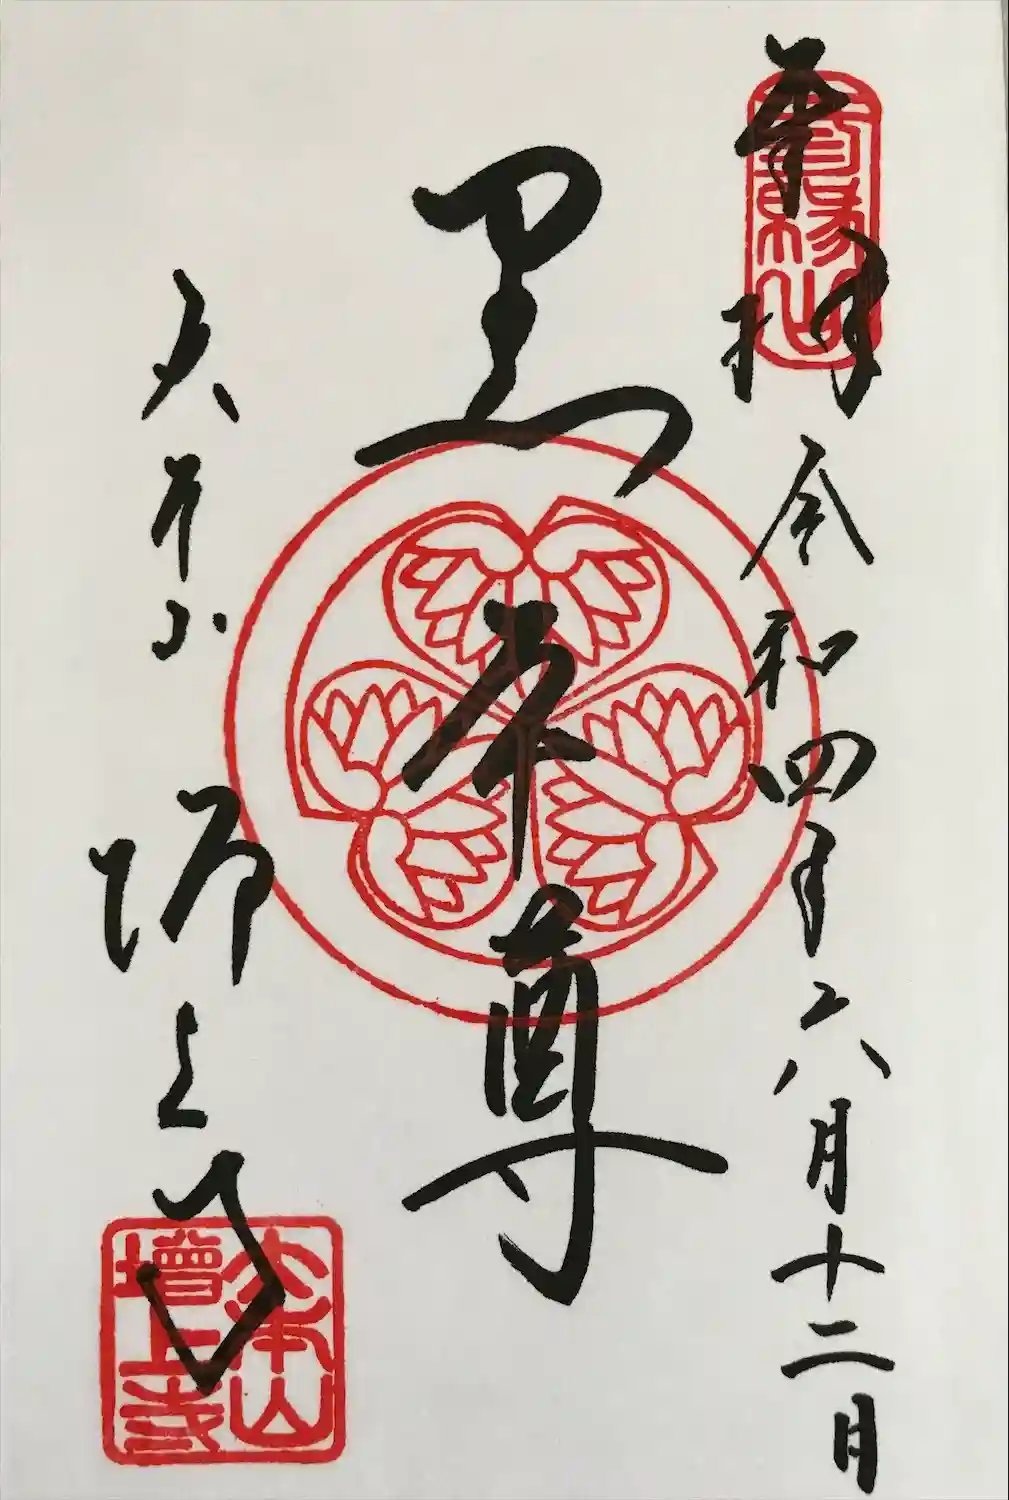 奉拝
令和四年六月十二日
黒本尊
大本山
増上寺
三縁山
大本山
増上寺